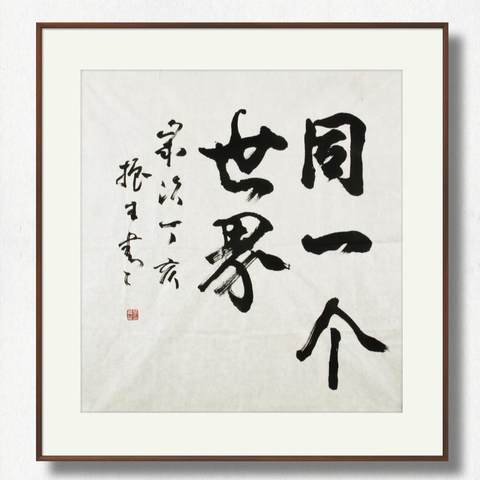 同一个
世界
岁次丁亥
振生书